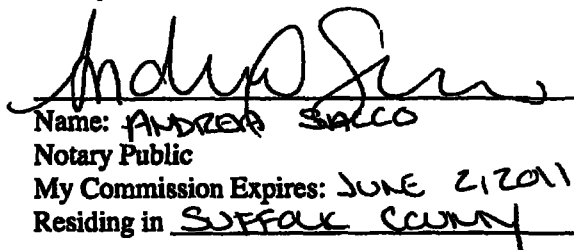 Andrea S
Name: ANDREA SACCO
Notary Public
My Commission Expires: JUNE 2, 2011
Residing in SUFFOLK COUNTY